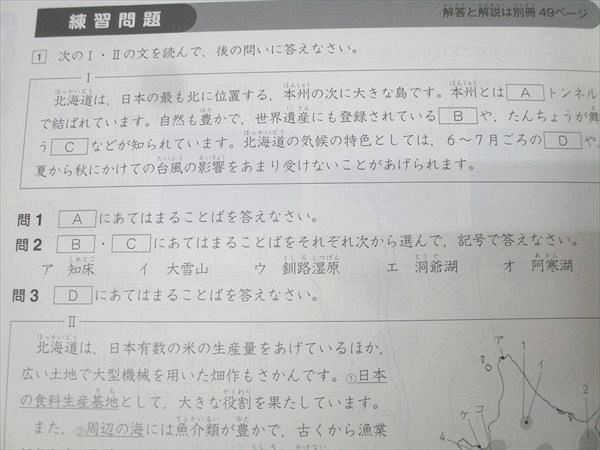 練習問題
解答と解説は別冊 49ページ
1 次のⅠ・Ⅱの文を読んで，後の問いに答えなさい。
Ⅰ
北海道は，日本の最も北に位置する，本州の次に大きな島です。本州とは A トンネル
で結ばれています。自然も豊かで，世界遺産にも登録されている B や，たんちょうが舞
う C などが知られています。北海道の気候の特色としては，6～7月ごろの D や，
夏から秋にかけての台風の影響をあまり受けないことがあげられます。
問1 A にあてはまることばを答えなさい。
問2 B ・ C にあてはまることばをそれぞれ次から選んで，記号で答えなさい。
ア 知床 イ 大雪山 ウ 釧路湿原 エ 洞爺湖 オ 阿寒湖
問3 D にあてはまることばを答えなさい。
Ⅱ
北海道は，日本有数の米の生産量をあげているほか，
広い土地で大型機械を用いた畑作もさかんです。①日本
の食料生産基地として，大きな役割を果たしています。
また，②周辺の海には魚介類が豊かで，古くから漁業
ア
1
イ
ケ
コ
4